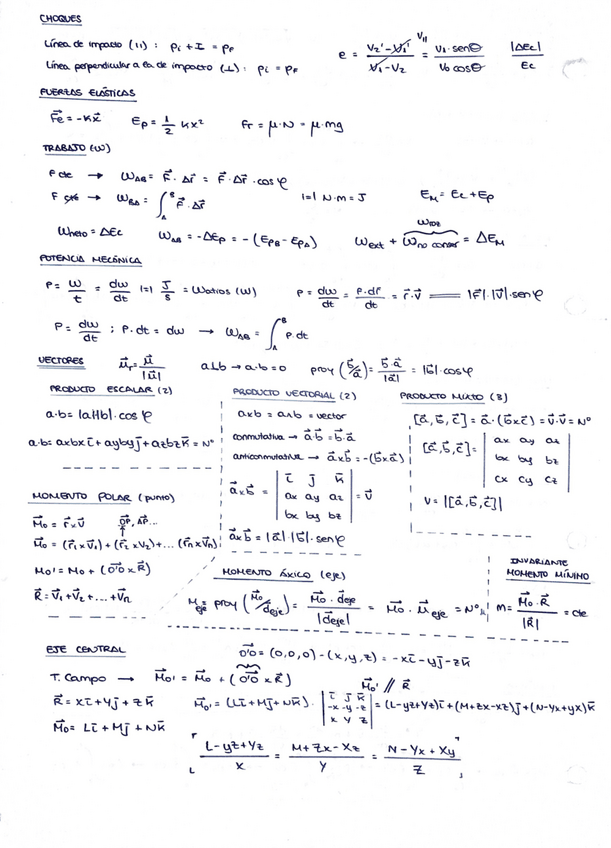 CHOQUES
Línea de impacto (11) : pi + I = pF
Línea perpendicular a la de impacto (⊥) : pi = pF
e = (V2' - V1') / (V1 - V2) = V1 · senθ / V0 cosθ
V11
|ΔEc| / Ec
FUERZAS ELÁSTICAS
Fe = -Kx Ep = 1/2 Kx² Fr = μ·N = μ·mg
TRABAJO (W)
F cte → WAB = F · Δr = F · Δr · cos φ
F cte → WBA = ∫AB F · Δr 1=1 N·m = J EM = Ec + Ep
Wneto = ΔEc WAB = -ΔEp = -(EpB - EpA) Wext + Wno conser = ΔEM
POTENCIA MECÁNICA
P = W/t = dw/dt 1=1 J/s = Watios (W) P = dw/dt = F·dr/dt = F·V = |F|·|V|·sen φ
P = dw/dt ; P·dt = dw → WAB = ∫AB P·dt
VECTORES ur = u/|u| a⊥b → a·b = 0 proy (b/a) = b·a/|a| = |b|·cos φ
PRODUCTO ESCALAR (2)
a·b = |a|·|b|·cos φ
a·b = axbx i + ayby j + azbz k = Nº
PRODUCTO VECTORIAL (2)
axb = a∧b = vector
conmutativa → a·b = b·a
anticonmutativa → axb = -(bxa)
axb = | i j k | = V
ax ay az
bx by bz
axb = |a|·|b|·sen φ
PRODUCTO MIXTO (3)
[a, b, c] = a·(bxc) = v·v = Nº
[a, b, c] = | ax ay az |
bx by bz
cx cy cz
V = |[a, b, c]|
MOMENTO POLAR (punto)
Mo = r x V OP, AP...
Mo = (r1 x V1) + (r2 x V2) + ... (rn x Vn)
Mo' = Mo + (O'O x R)
R = V1 + V2 + ... + Vn
MOMENTO ÁXICO (eje)
Meje = proy (Mo/deje) = Mo · deje / |deje| = Mo · ueje = Nº
INVARIANTE
MOMENTO MÍNIMO
m = Mo · R / |R| = cte
EJE CENTRAL
O'O = (0,0,0) - (x,y,z) = -xi - yj - zk
T. Campo → Mo' = Mo + (O'O x R) Mo' // R
R = Xi + Yj + Zk
Mo' = (Li + Mj + Nk) · | i j k | = (L-yZ+Yz)i + (M+Zx-Xz)j + (N-Yx+yX)k
-x -y -z
X Y Z
Mo = Li + Mj + Nk
(L-yZ+Yz)/X = (M+Zx-Xz)/Y = (N-Yx+Xy)/Z